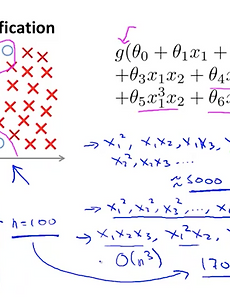 fication
g(θ₀ + θ₁x₁ +
+θ₃x₁x₂ + θ₄x
+θ₅x₁³x₂ + θ₆x
→ x₁², x₁x₂, x₁x₃, x
x₂², x₂x₃ ...
≈ 5000
→ x₁², x₂², x₃², ...,
n=100
→ x₁x₂x₃, x₁²x₂,
O(n³)
170